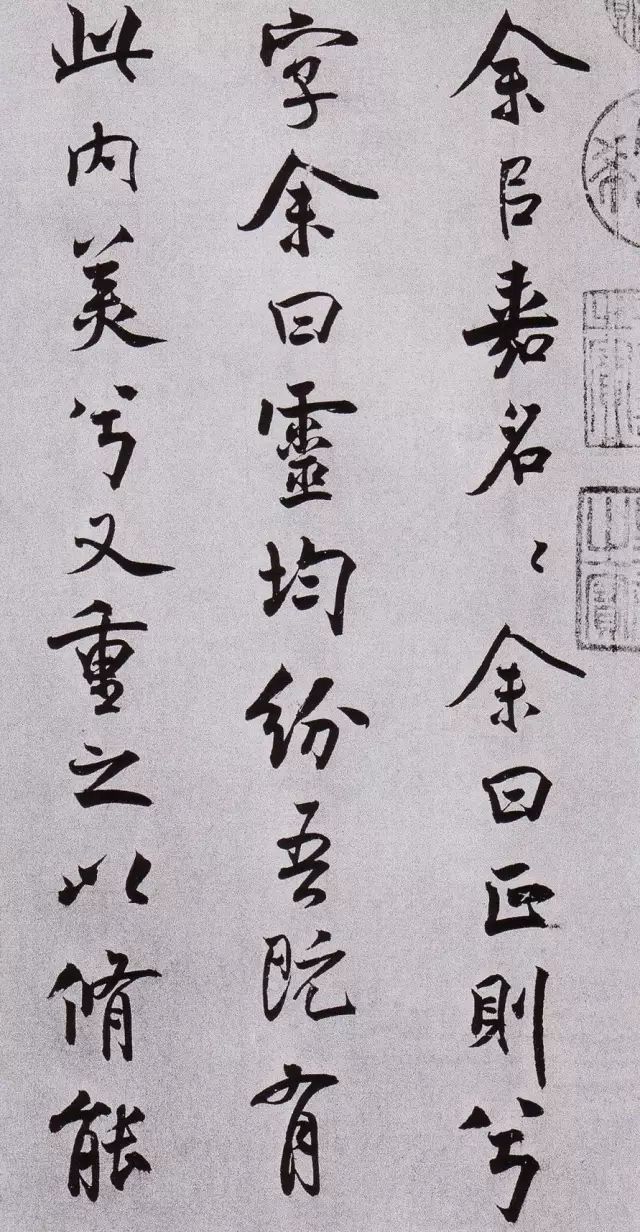 余㠯嘉名〻余曰正則兮
字余曰靈均紛吾既有
此內美兮又重之以脩能